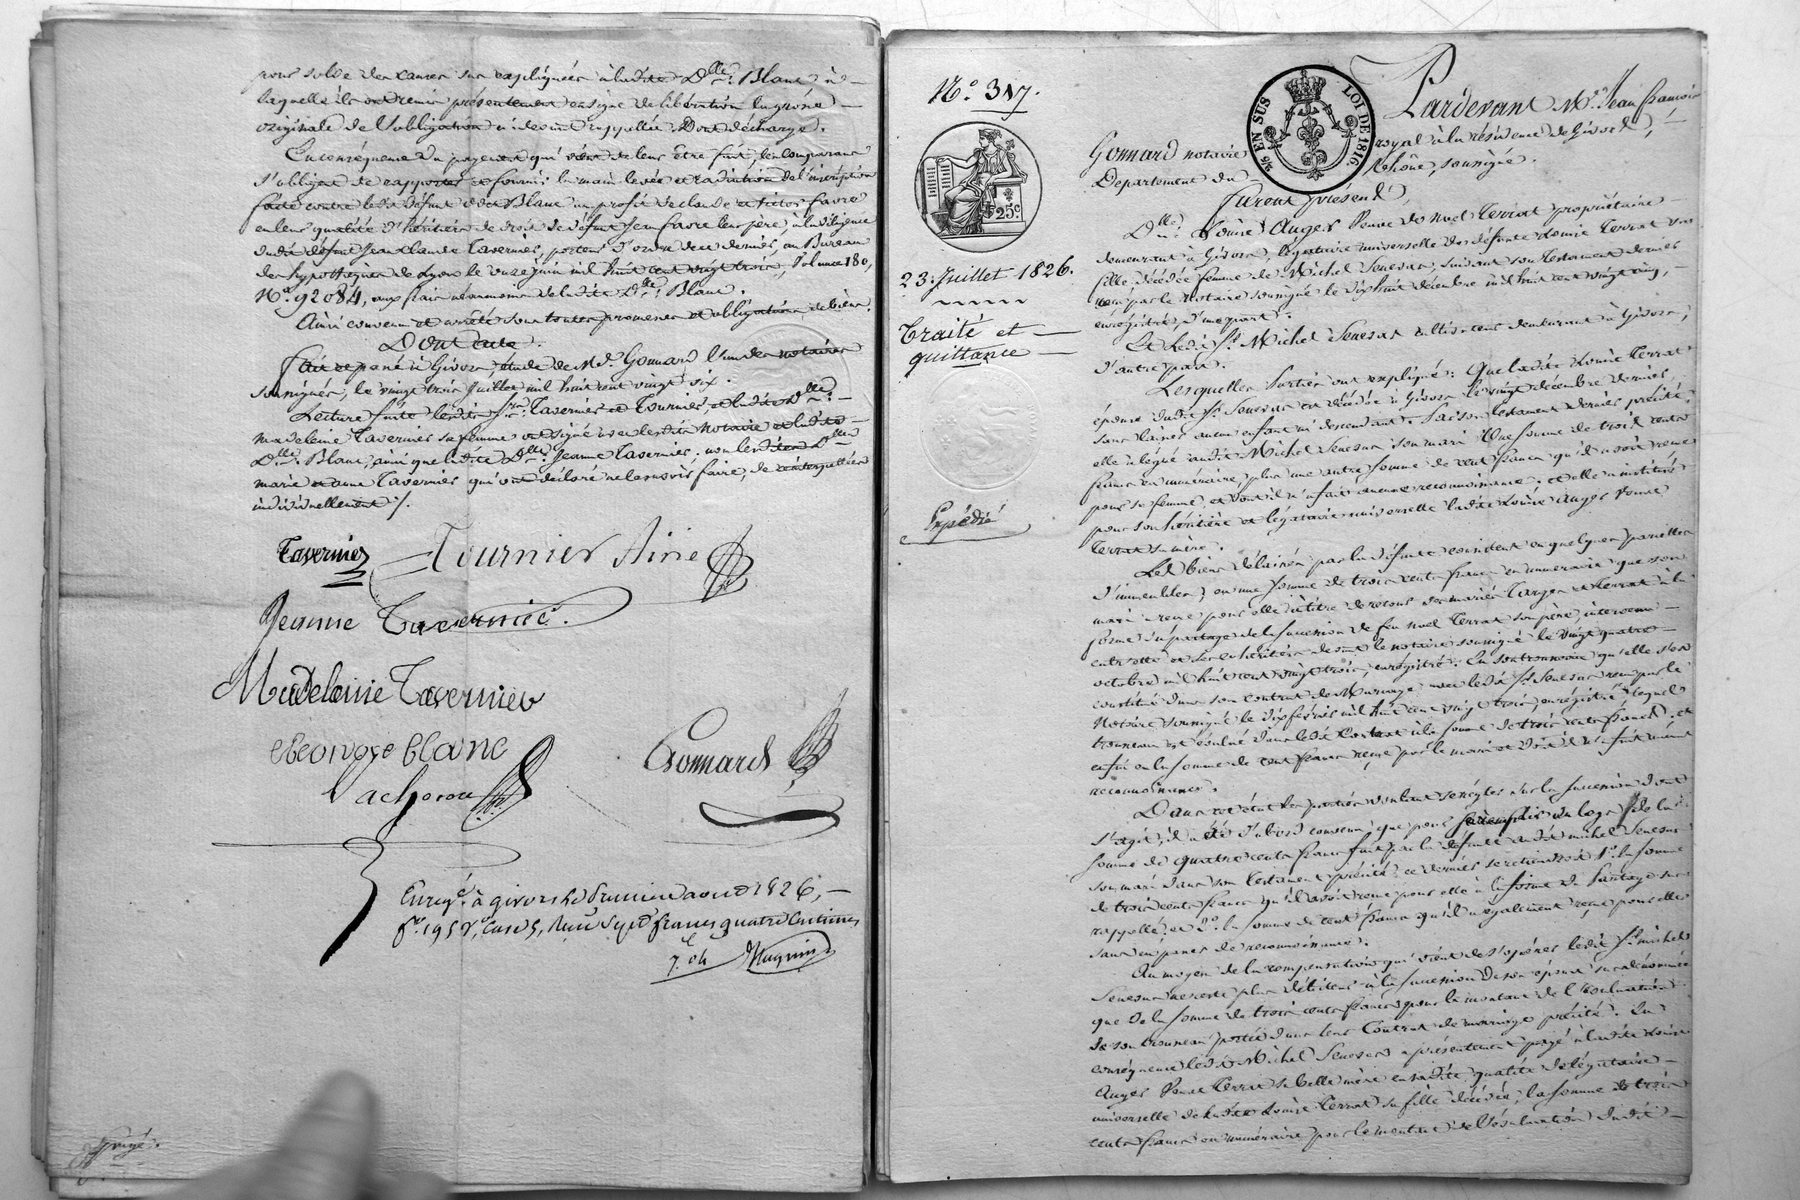 pour solde des causes sus expliquées à ladite Dlle. Blanc à
laquelle ils ont remis présentement en signe de libération la grosse
originale de l'obligation ci devant rappellée. Dont décharge.
En conséquence du payement qui vient de leur être fait, les comparans
s'obligent de rapporter et fournir la main levée et radiation de l'inscription
faite contre ledit défunt Blanc au profit de claude et victor favre
en leur qualité d'héritiers de droit de défunt Jean favre leur père, à la diligence
dudit défunt Jean Claude Tavernier, porteur d'ordre de ce dernier, au Bureau
des hypothèques de Lyon le onze juin mil huit cent vingt trois, Volume 180,
N.° 92084, aux frais néanmoins de ladite Dlle. Blanc.
Ainsi convenu et arrêté sous toutes promesses et obligations de biens.
Dont acte.
Fait et passé à Givors, étude de Me. Gonnard l'un des notaires
soussignés, le vingt trois Juillet mil huit cent vingt six.
Lecture faite lesdits Srs. Tavernier et Tournier, et ladite Dlle.
madeleine Tavernier sa femme ont signé avec lesdits notaires et ladite
Dlle. Blanc, ainsi que ladite Dlle. Jeanne Tavernier, non lesdites Dlles
marie et anne Tavernier qui ont déclaré ne le savoir faire, de ce interpellées
individuellement /.
Tavernier
Tournier Aine
Jeanne Tavernier.
Madelainie Tavernier
Blanc
Gonnard
Enregé. à givors le Premier aout 1826,
fo. 195 Vo., Case 5, Reçu Sept francs quatre Centimes
N.° 317.
25c
23. Juillet 1826.
Traité et
quittance
Expédié
Pardevant Me. Jean francois
Gonnard notaire royal à la résidence de Givors,
Département du Rhône, soussigné.
EN SUS
LOI DE 1816
Furent Présens
Dlle. Louise Auger Veuve de Noel Terrat propriétaire
demeurant à Givors, légataire universelle de défunte Louise Terrat sa
fille, décédée femme de Michel Senesar, suivant son testament dernier
reçu par le notaire soussigné le dix huit décembre mil huit cent vingt cinq,
enregistré, d'une part.
Et ledit Sr. Michel Senesar cultivateur demeurant à Givors,
d'autre part.
Lesquelles Parties ont expliqué : Que ladite Louise Terrat
épouse dudit Sr. Senesar est décédée à Givors le vingt décembre dernier
sans laisser aucun enfant ni descendant. Par son testament dernier précité,
elle a légué audit Michel Senesar son mari Une somme de trois cents
francs en numéraire, plus une autre somme de cent francs qu'il avoit reçue
pour sa femme, et dont il n'a fait aucune reconnoissance. et elle a institué
pour son héritière et légataire universelle ladite Louise Auger Veuve
Terrat sa mère.
Les biens délaissés par la défunte consistent en quelques parcelles
d'immeubles, en une somme de trois cents francs en numéraire que son
mari a reçue pour elle à titre de retour des mariés Targer et Terrat à la
forme du partage de la succession de feu Noel Terrat son père, intervenu
entr'elle et ses cohéritiers devant le notaire soussigné le vingt quatre
octobre mil huit cent vingt trois, enregistré. En son trousseau qu'elle s'est
constitué dans son contrat de Mariage avec ledit Sr. Senesar reçu par le
Notaire soussigné le dix février mil huit cent vingt trois, enregistré, lequel
trousseau est évalué dans ledit Contrat à la somme de trois cents francs, et
enfin en la somme de cent francs reçue par le mari et dont il n'a fait aucune
reconnoissance.
Dans cet état les parties voulant se régler sur la succession dont
s'agit, il a été d'abord convenu que pour se remplir du legs de la
somme de quatre cents francs fait par la défunte audit michel Senesar
son mari dans son testament précité, ce dernier se retiendroit 1°. la somme
de trois cents francs qu'il avoit reçue pour elle à la forme du Partage sus
rappellé et 2°. la somme de cent francs qu'il a également reçue pour elle
sans en passer de reconnoissance.
Au moyen de la compensation qui vient de s'opérer ledit Sr. michel
Senesar ne reste plus débiteur à la succession de son épouse
que de la somme de trois cents francs pour le montant de l'évaluation
de son trousseau portée dans leur Contrat de mariage précité. En
conséquence ledit Michel Senesar a présentement payé à ladite Louise
Auger Veuve Terrat sa belle mère en sadite qualité de légataire
universelle de ladite Louise Terrat sa fille décédée, la somme de trois
cents francs en numéraire pour le montant de l'évaluation dudit